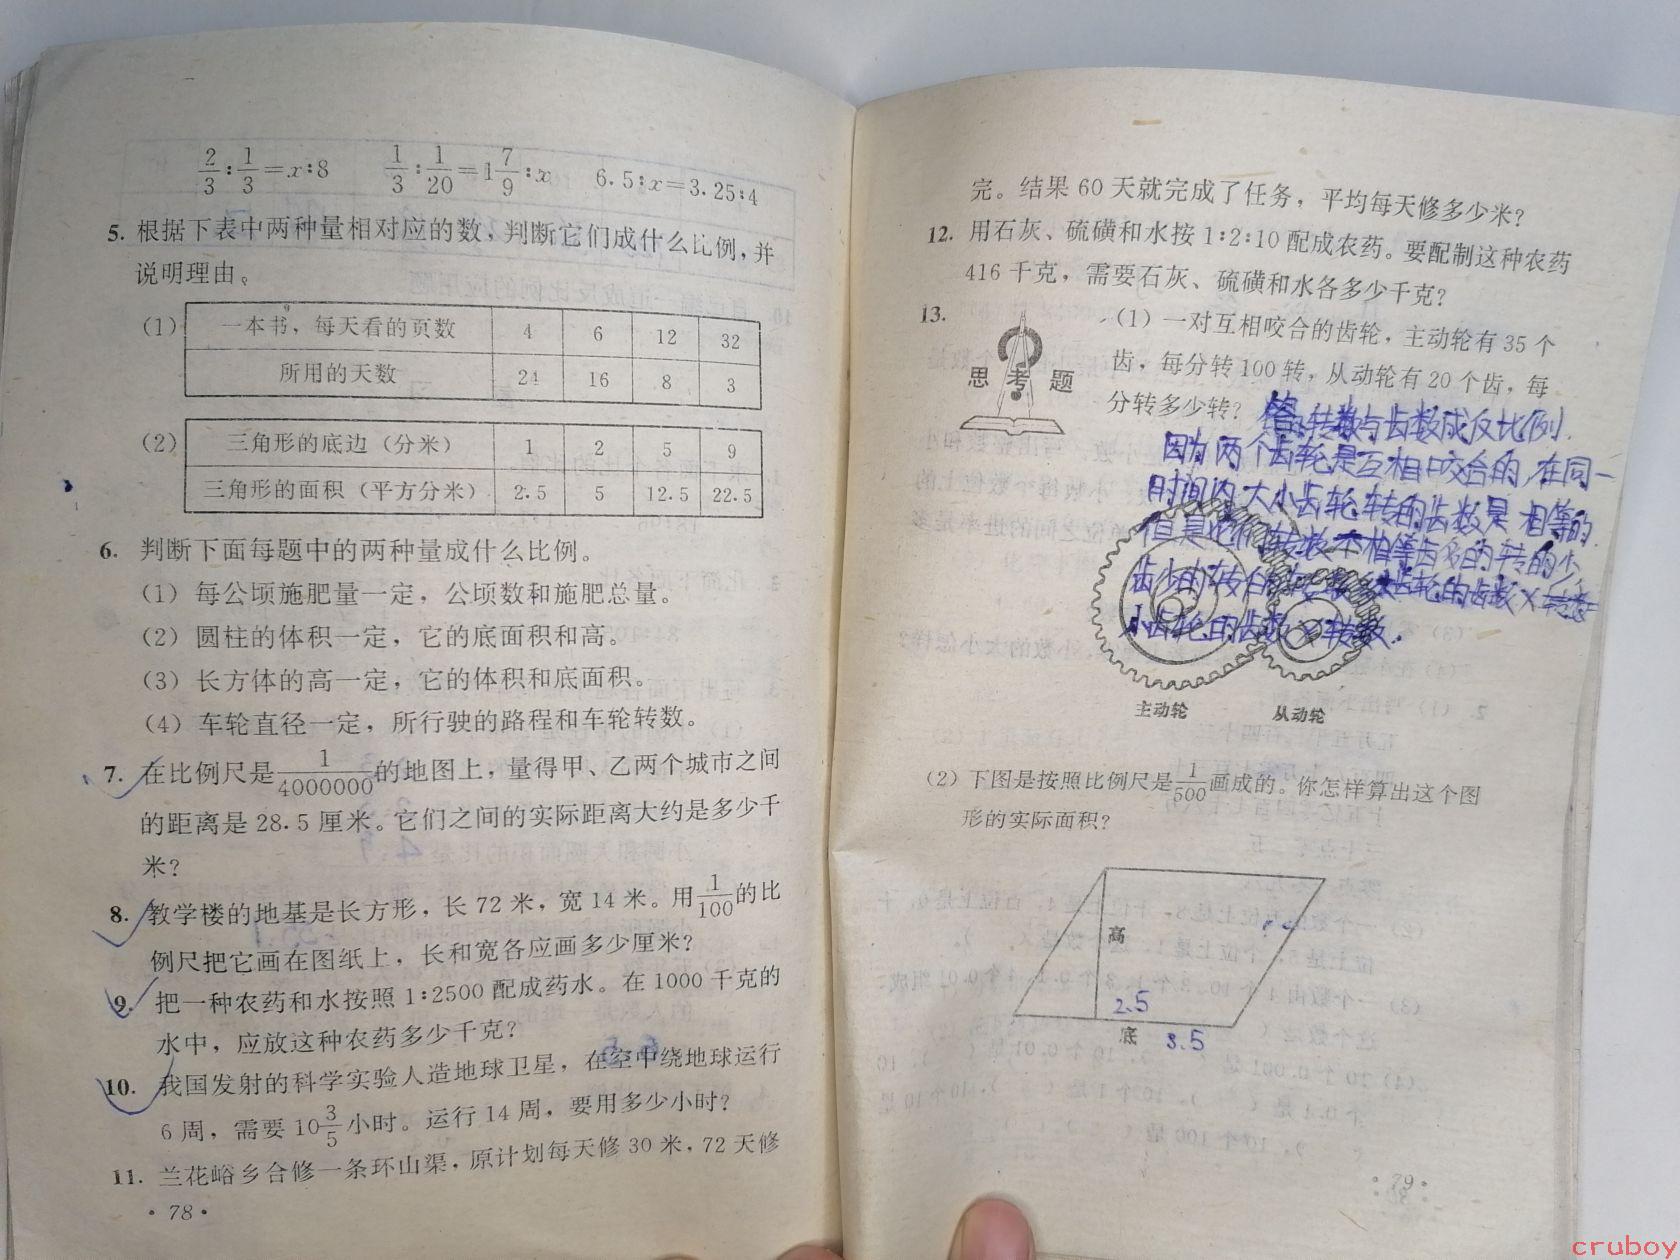 2/3:1/3=x:8  1/3:1/20=1 7/9:x  6.5:x=3.25:4
5. 根据下表中两种量相对应的数，判断它们成什么比例，并
说明理由。
(1) 一本书，每天看的页数 4 6 12 32
所用的天数 24 16 8 3
(2) 三角形的底边（分米） 1 2 5 9
三角形的面积（平方分米） 2.5 5 12.5 22.5
6. 判断下面每题中的两种量成什么比例。
(1) 每公顷施肥量一定，公顷数和施肥总量。
(2) 圆柱的体积一定，它的底面积和高。
(3) 长方体的高一定，它的体积和底面积。
(4) 车轮直径一定，所行驶的路程和车轮转数。
7. 在比例尺是1/4000000的地图上，量得甲、乙两个城市之间
的距离是28.5厘米。它们之间的实际距离大约是多少千
米？
8. 教学楼的地基是长方形，长72米，宽14米。用1/100的比
例尺把它画在图纸上，长和宽各应画多少厘米？
9. 把一种农药和水按照1:2500配成药水。在1000千克的
水中，应放这种农药多少千克？
10. 我国发射的科学实验人造地球卫星，在空中绕地球运行
6周，需要10 3/5小时。运行14周，要用多少小时？
11. 兰花峪乡合修一条环山渠，原计划每天修30米，72天修
·78·
完。结果60天就完成了任务，平均每天修多少米？
12. 用石灰、硫磺和水按1:2:10配成农药。要配制这种农药
416千克，需要石灰、硫磺和水各多少千克？
13. 思考题
(1) 一对互相咬合的齿轮，主动轮有35个
齿，每分转100转，从动轮有20个齿，每
分转多少转？
答：转数与齿数成反比例.
因为两个齿轮是互相咬合的，在同一
时间内，大小齿轮转的齿数是相等的.
但是 转数不相等齿多的转的少
齿少的转 齿轮的齿数×转数=
小齿轮的齿数×转数.
主动轮 从动轮
(2) 下图是按照比例尺是1/500画成的。你怎样算出这个图
形的实际面积？
高
2.5
底 3.5
·79·
cruboy